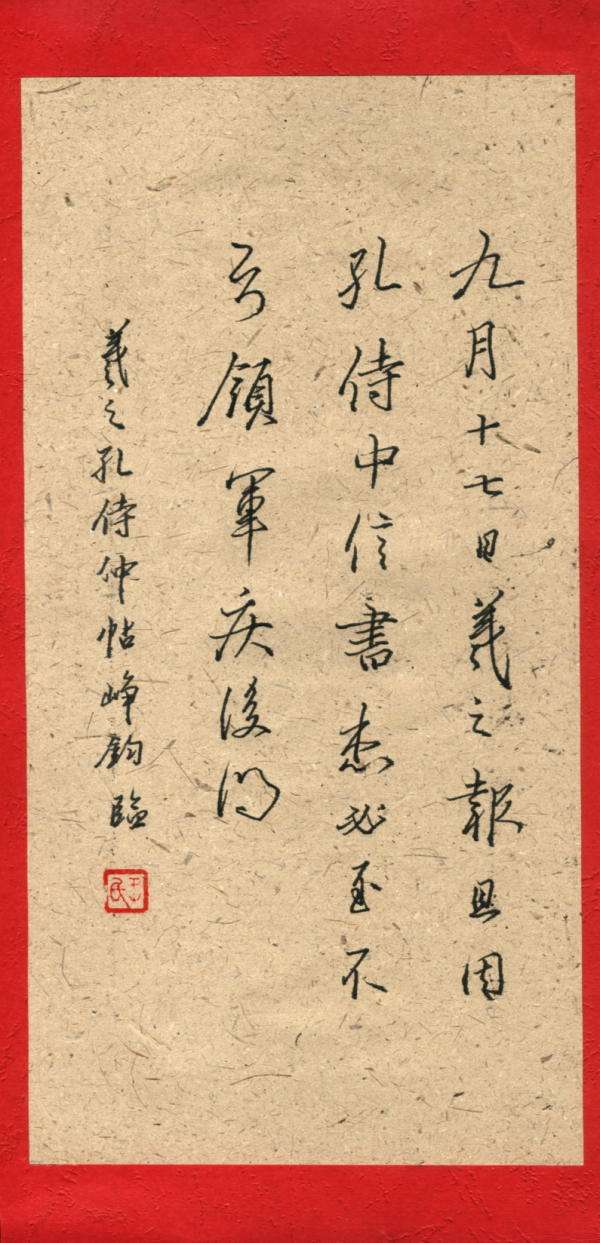 九月十七日羲之報且因
孔侍中信書想必至不
知領軍疾後問
羲之孔侍仲帖崢鈞臨